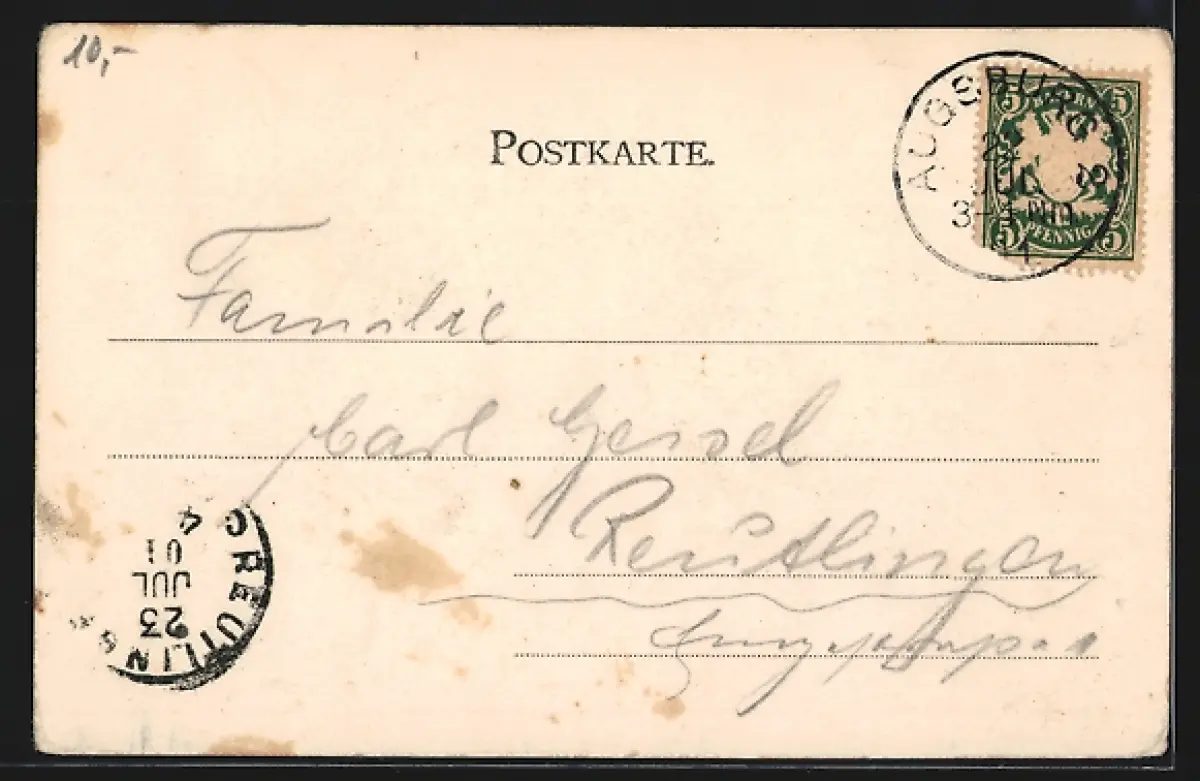 10,-
POSTKARTE.
AUGSBURG 2
JUL
3-4 Nm
01
5 BAYERN 5
5 PFENNIG 5
Familie
Carl Gessel
Reutlingen
REUTLING
23
JUL
01
4